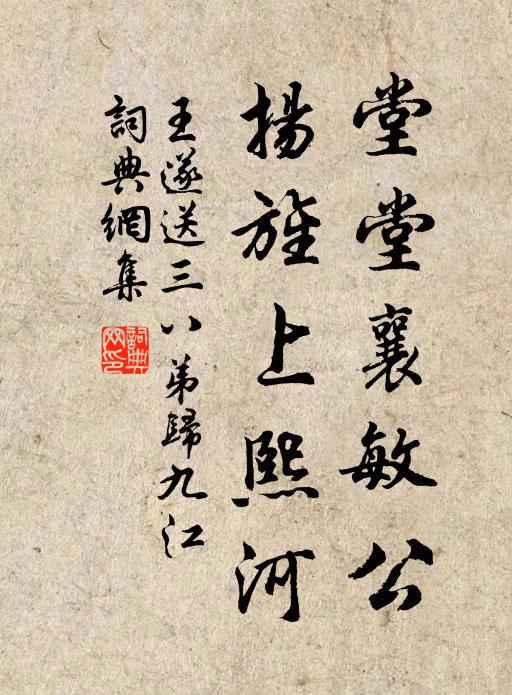 堂堂襄敏公
揚旌上熙河
王遂送三八弟歸九江
詞典網集
詞典網印